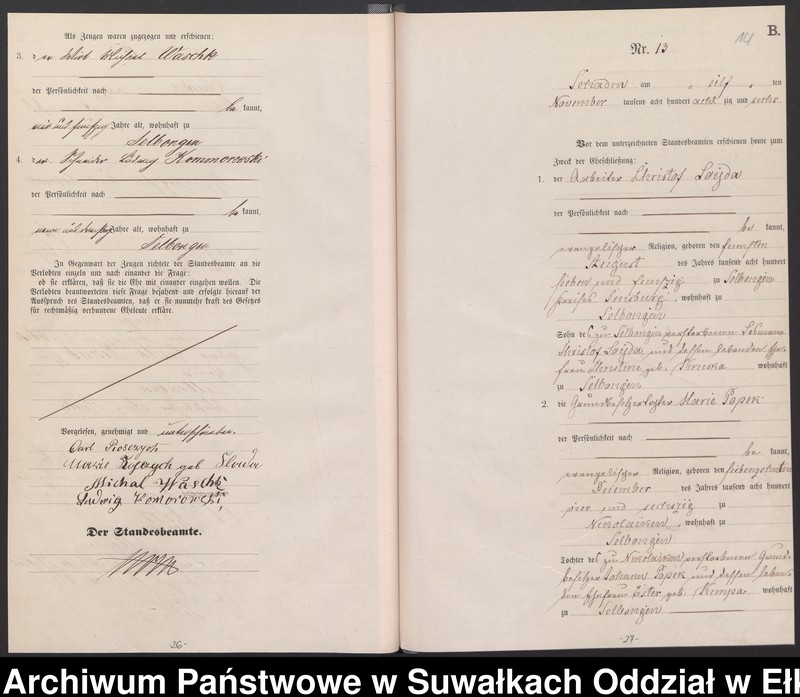 Als Zeugen waren zugezogen und erschienen:
3. der Wirt Waschk
der Persönlichkeit nach
be kannt,
fünfzig Jahre alt, wohnhaft zu
Selbongen
4. der Schneider Ludwig Kommorowski
der Persönlichkeit nach
be kannt,
neun und dreißig Jahre alt, wohnhaft zu
Selbongen
In Gegenwart der Zeugen richtete der Standesbeamte an die
Verlobten einzeln und nach einander die Frage:
ob sie erklären, daß sie die Ehe mit einander eingehen wollen. Die
Verlobten beantworteten diese Frage bejahend und erfolgte hierauf der
Ausspruch des Standesbeamten, daß er sie nunmehr kraft des Gesetzes
für rechtmäßig verbundene Eheleute erkläre.
Vorgelesen, genehmigt und unterschrieben.
Carl
geb
Michal Waschk
Ludwig Komorowski
Der Standesbeamte.
-26-
B.
Nr. 13
am elf ten
November tausend acht hundert acht zig und sechs
Vor dem unterzeichneten Standesbeamten erschienen heute zum
Zweck der Eheschließung:
1. der Arbeiter Christof Sayda
der Persönlichkeit nach
be kannt,
evangelischer Religion, geboren den fünften
August des Jahres tausend acht hundert
sieben und fünfzig zu Selbongen
Kreises Sensburg, wohnhaft zu
Selbongen
Sohn des zu Selbongen verstorbenen
Christof Sayda und dessen lebenden Ehe-
frau geb. wohnhaft
zu Selbongen
2. die Grundbesitzertochter Marie Papek
der Persönlichkeit nach
be kannt,
evangelischer Religion, geboren den siebenzehnten
Dezember des Jahres tausend acht hundert
vier und sechszig zu
Nikolaiken, wohnhaft zu
Selbongen
Tochter des zu Nikolaiken verstorbenen Grund-
besitzer Johann Papek und dessen leben-
den Ehefrau Ester geb. Kompa wohnhaft
zu Selbongen
-27-
Archiwum Państwowe w Suwałkach Oddział w Eł